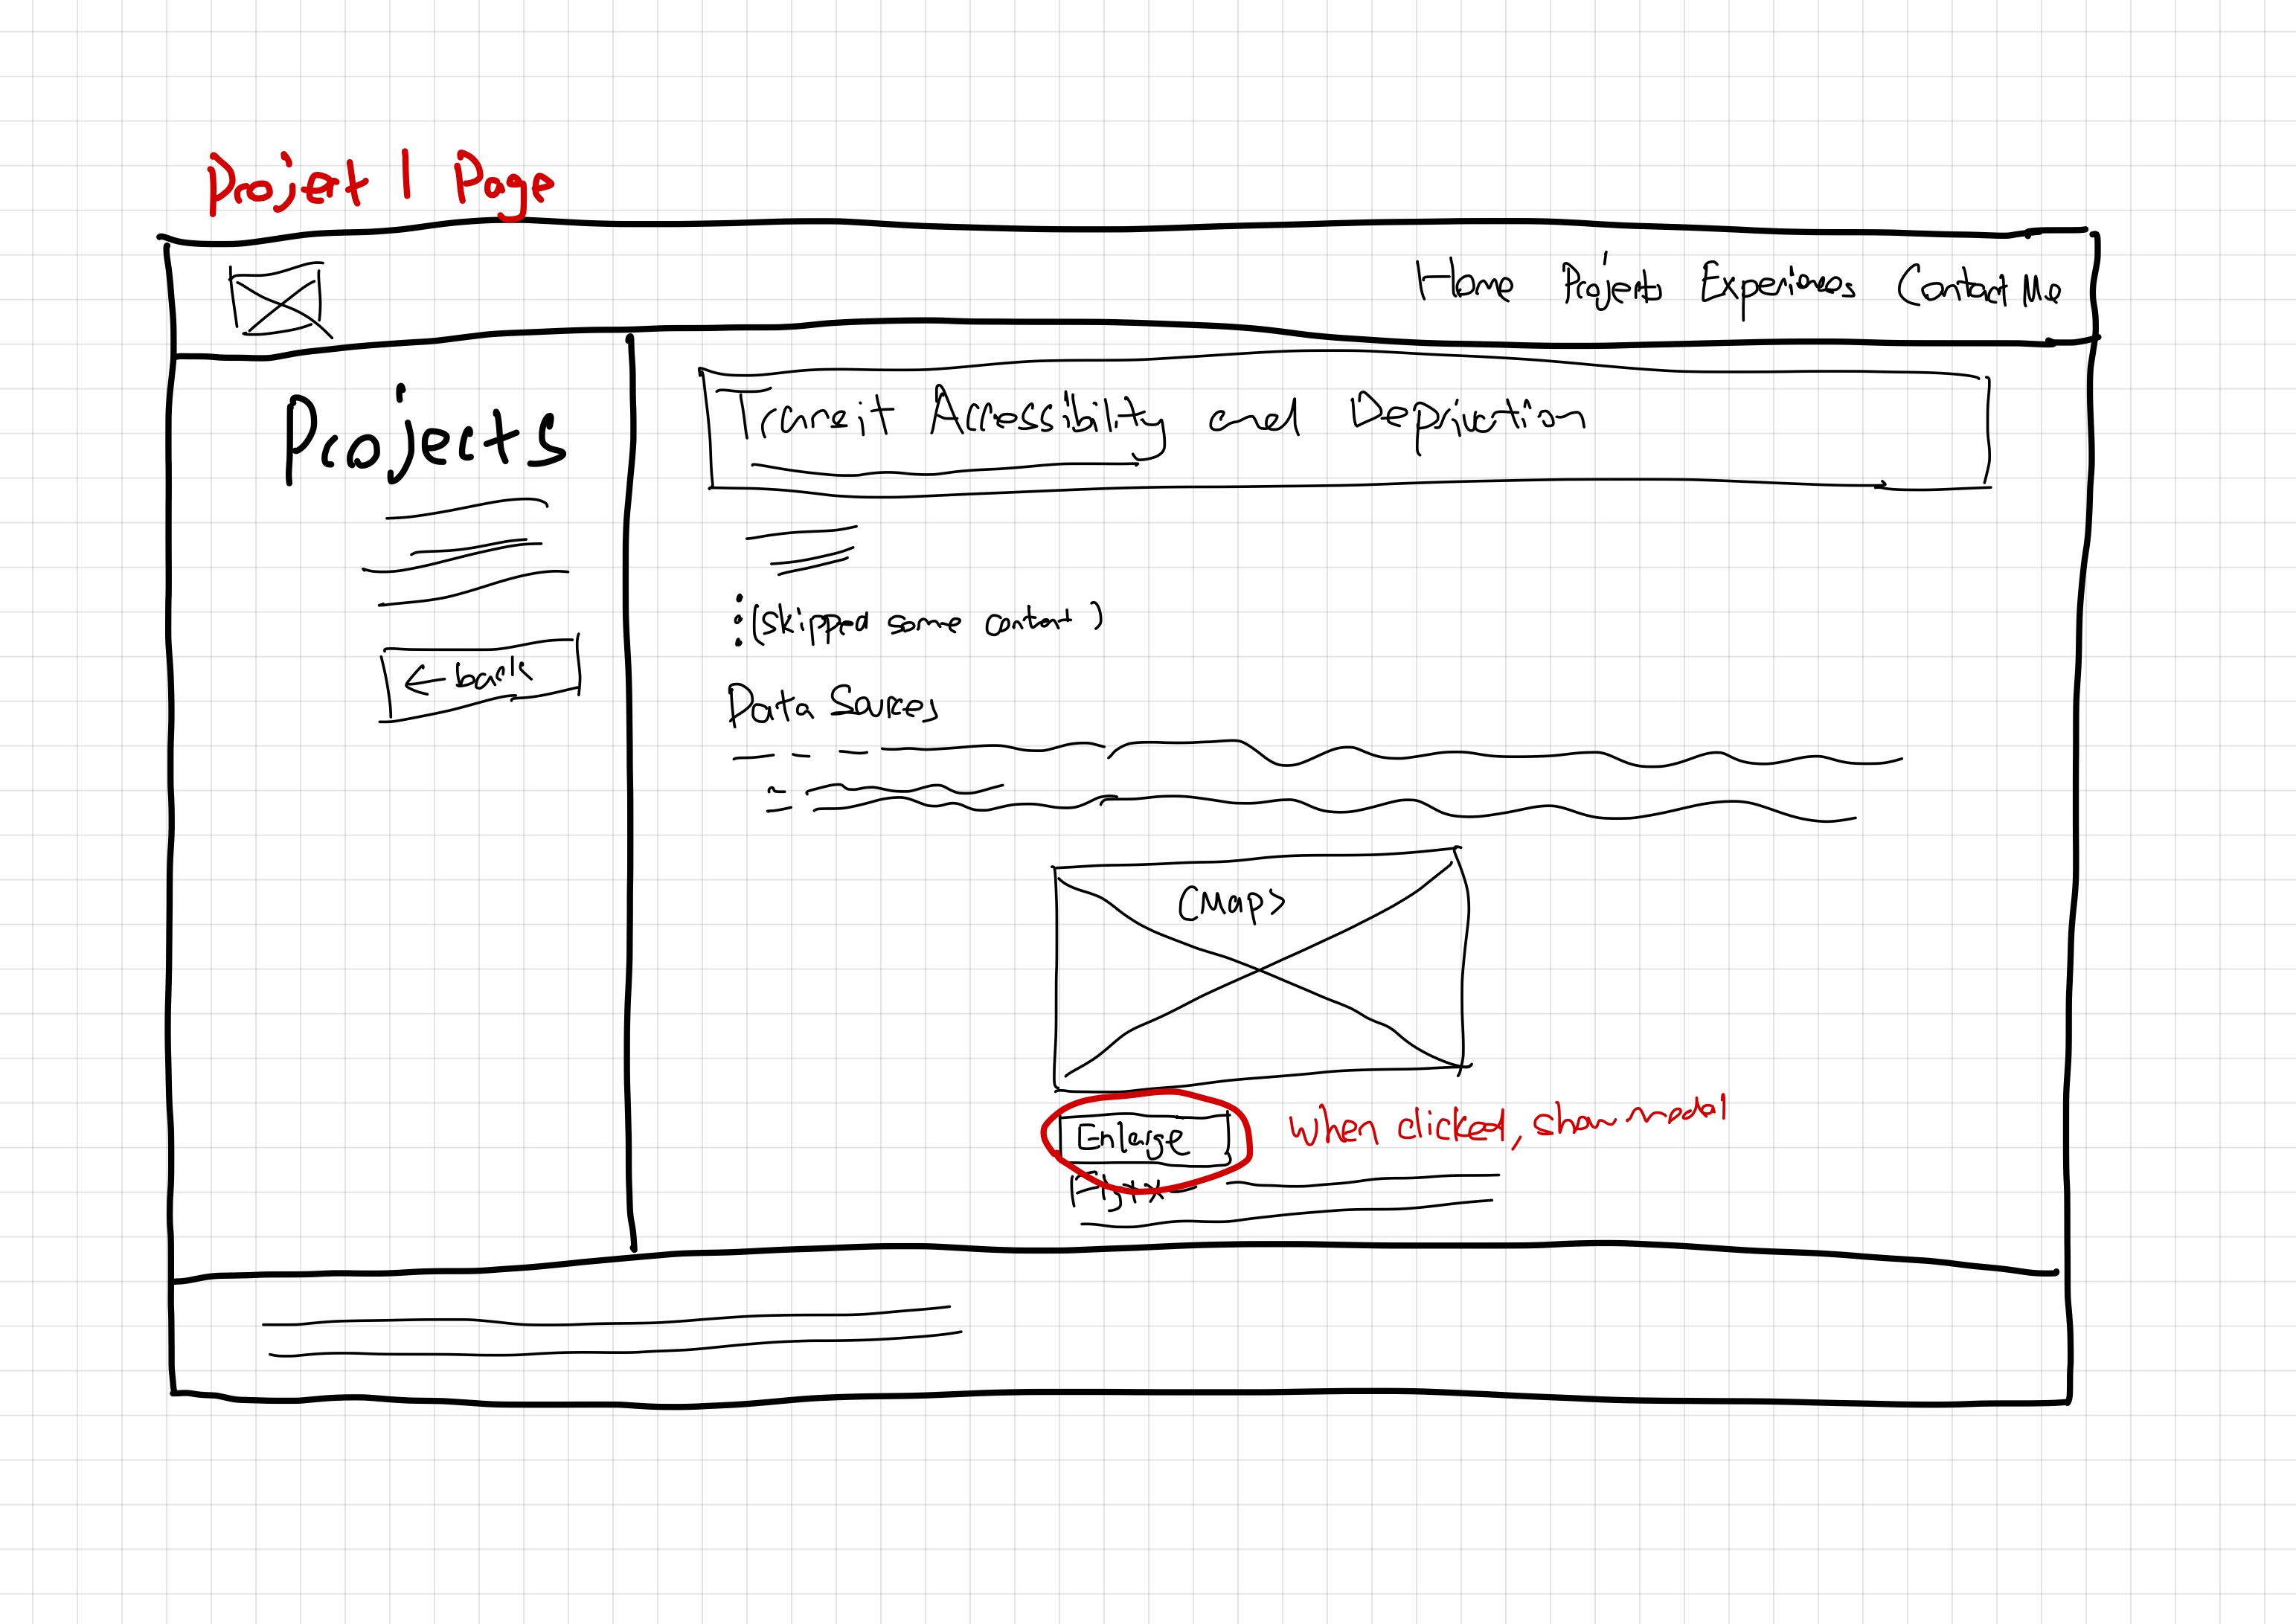 Projet 1 Page
Home Projects Experiences Contact Me
Projects
Transit Accessibility and Depriviation
(skipped some content)
← back
Data Sources
<Map>
Enlarge
When clicked, show modal